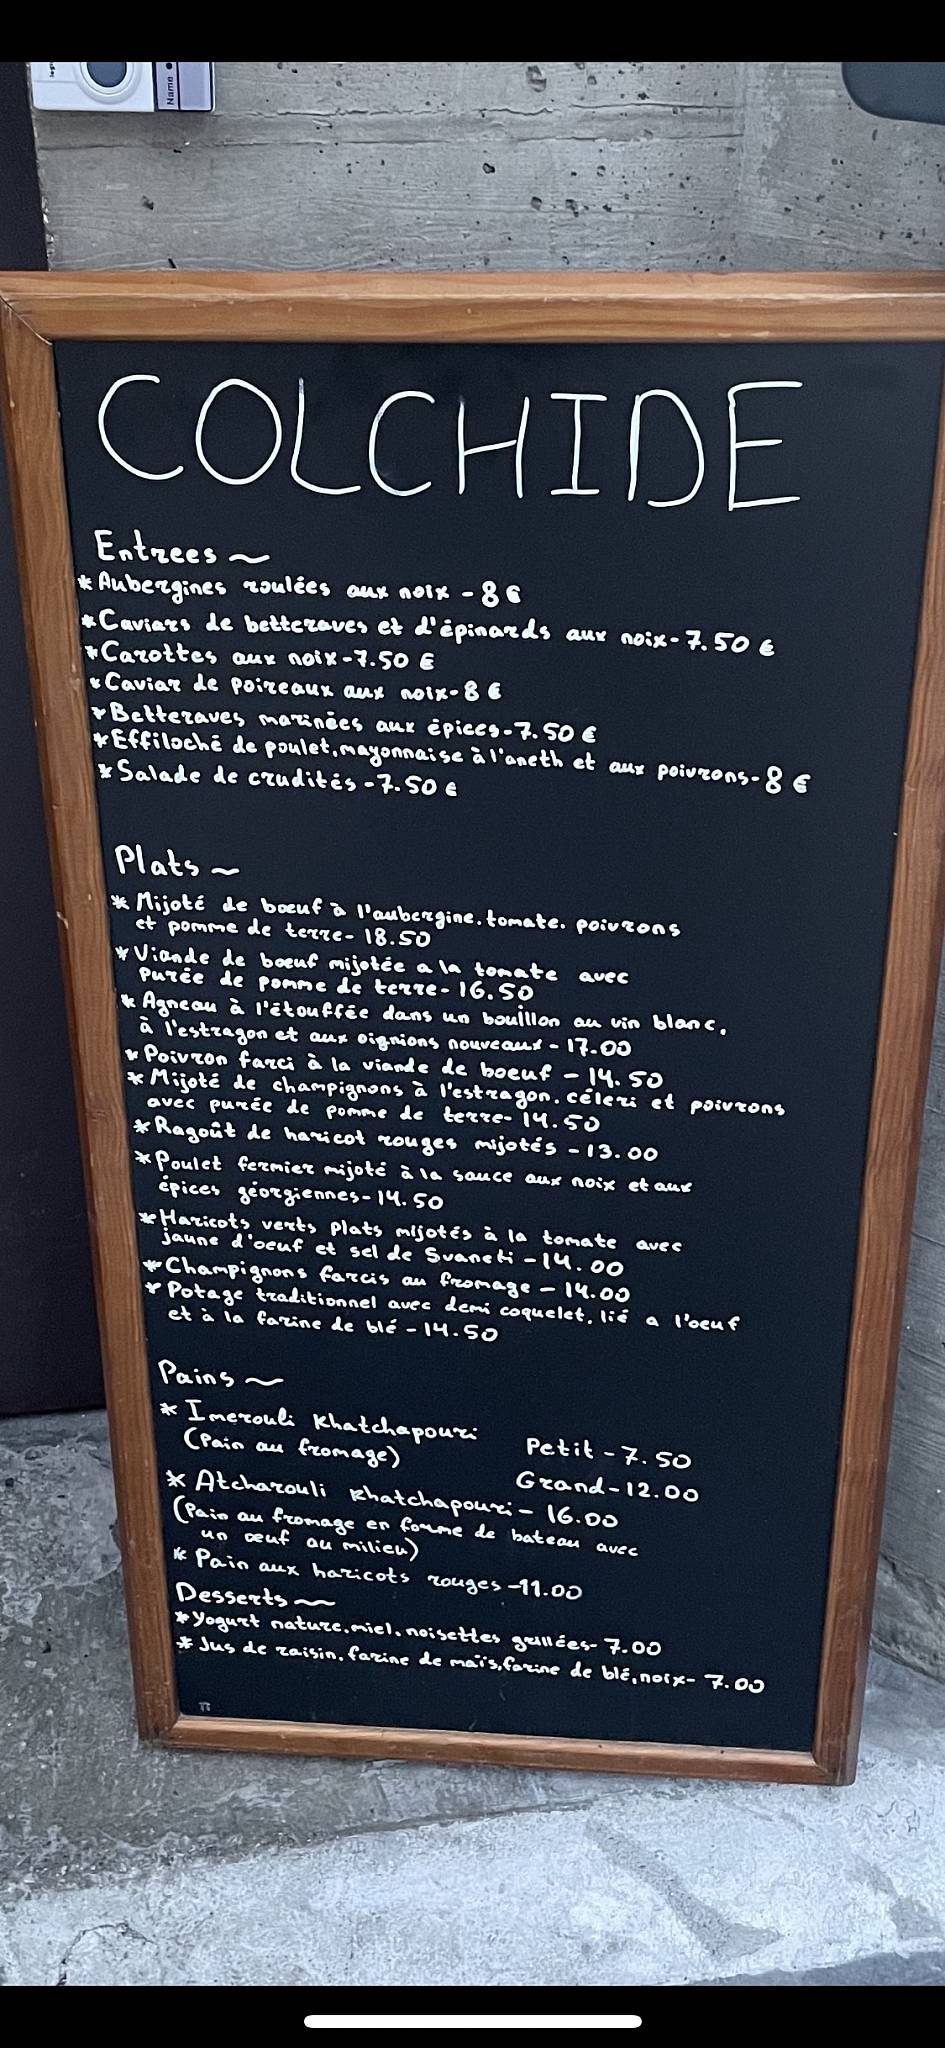 Name
COLCHIDE
Entrees ~
* Aubergines roulées aux noix - 8 €
* Caviars de betteraves et d'épinards aux noix - 7.50 €
* Carottes aux noix - 7.50 €
* Caviar de poireaux aux noix - 8 €
* Betteraves marinées aux épices - 7.50 €
* Effiloché de poulet, mayonnaise à l'aneth et aux poivrons - 8 €
* Salade de crudités - 7.50 €
Plats ~
* Mijoté de bœuf à l'aubergine. tomate. poivrons
et pomme de terre - 18.50
* Viande de bœuf mijotée a la tomate avec
purée de pomme de terre - 16.50
* Agneau à l'étouffée dans un bouillon au vin blanc,
à l'estragon et aux oignions nouveaux - 17.00
* Poivron farci à la viande de boeuf - 14.50
* Mijoté de champignons à l'estragon. céleri et poivrons
avec purée de pomme de terre - 14.50
* Ragoût de haricot rouges mijotés - 13.00
* Poulet fermier mijoté à la sauce aux noix et aux
épices géorgiennes - 14.50
* Haricots verts plats mijotés à la tomate avec
jaune d'oeuf et sel de Svaneti - 14.00
* Champignons farcis au fromage - 14.00
* Potage traditionnel avec demi coquelet. lié a l'oeuf
et à la farine de blé - 14.50
Pains ~
* Imerouli Khatchapouri
(Pain au fromage)
Petit - 7.50
Grand - 12.00
* Atcharouli Khatchapouri - 16.00
(Pain au fromage en forme de bateau avec
un œuf au milieu)
* Pain aux haricots rouges - 11.00
Desserts ~
* Yogurt nature. miel. noisettes grillées - 7.00
* Jus de raisin. farine de maïs, farine de blé, noix - 7.00